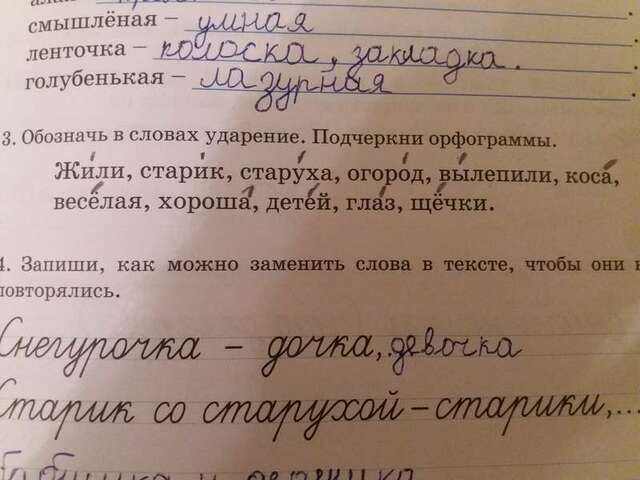 смышлёная – умная
ленточка – полоска, закладка.
голубенькая – лазурная
3. Обозначь в словах ударение. Подчеркни орфограммы.
Жи́ли, стари́к, стару́ха, огоро́д, вы́лепили, коса́,
весёлая, хороша́, дете́й, гла́з, щёчки.
4. Запиши, как можно заменить слова в тексте, чтобы они
повторялись.
Снегурочка – дочка, девочка
Старик со старухой – старики,...